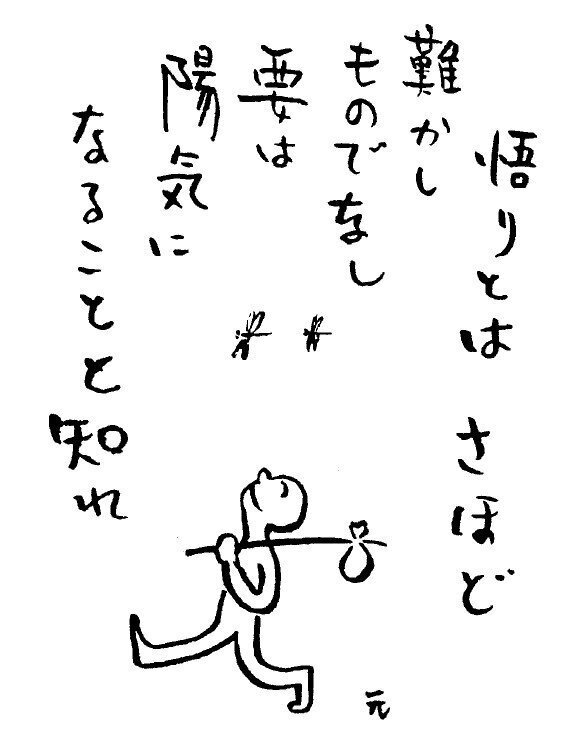 悟りとは さほど
難かし
ものでなし
要は
陽気に
なることと知れ
元